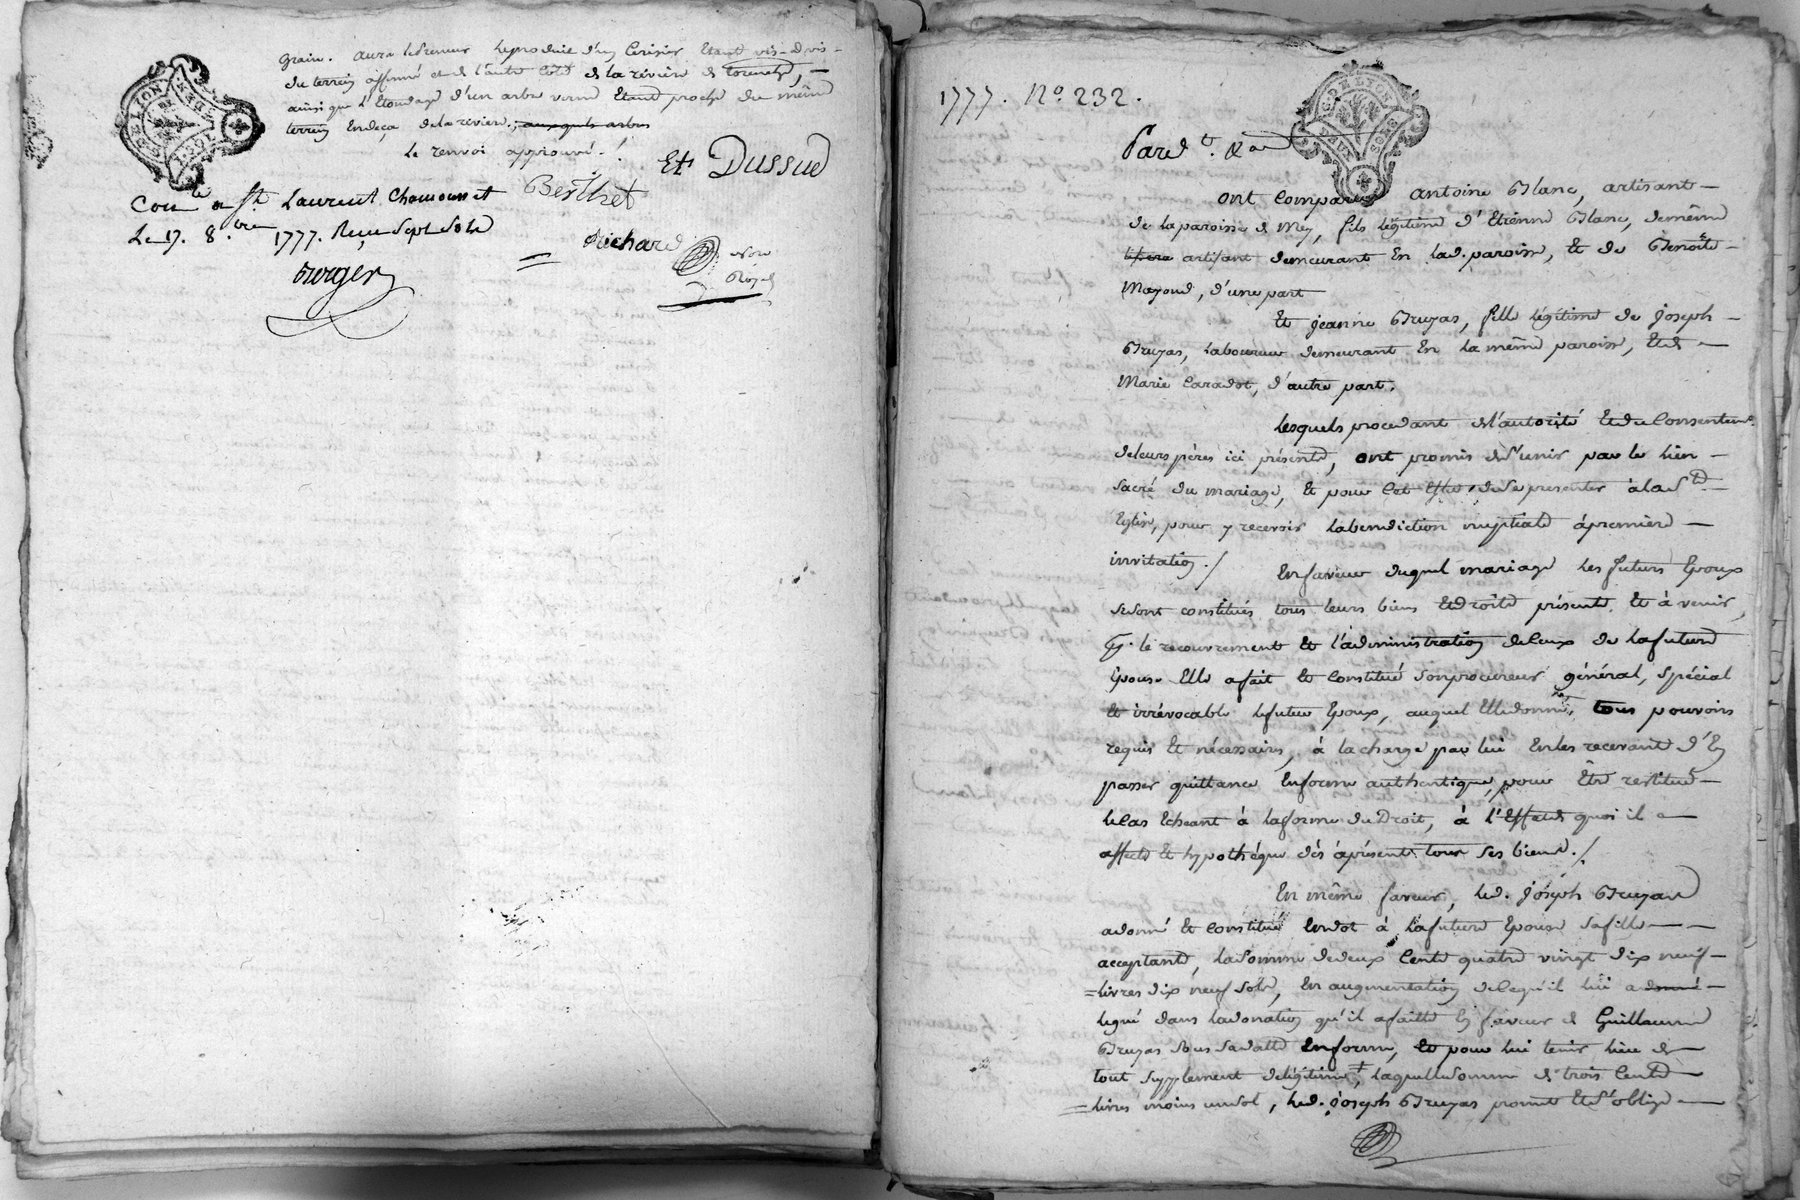 grain. aura le preneur le produit d'un Cerisier Etant vis-a-vis-
du terrein affermé et de l'autre coté de la rivière de
ainsi que l'Etondage d'un arbre verne Etant proche du même
terrein Endeça de la riviere, auxquels arbres
Le renvoi approuvé./.
Et Dussud
Berthet
Con.le a St. Laurent Chamousset
Le 17. 8.bre 1777. Reçu Sept Sols
Richard
Nore
Royal
Borger
G. DE LION
DEUX
SOLS
1777. No. 232.
G. DE LYON
DEUX SOLS
Pard.t &a
ont comparu antoine Blanc, artisant-
de la paroisse de Mey, fils légitime d'Etienne Blanc, de même
artisant demeurant En lad. paroisse, Et de Benoîte-
Mayoud, d'une part
Et jeanne Bruyas, fille légitime de joseph-
Bruyas, Laboureur demeurant En la même paroisse, Et de-
Marie Caradot, d'autre part.
Lesquels procedant de l'autorité Et du Consenteme.
de leurs pères ici présents, ont promis de s'unir par le lien-
sacré du mariage, Et pour Cet Effet, de se presenter à la Ste
Eglise, pour y recevoir la benediction nuptiale à premiere-
invitation./
En faveur duquel mariage Les futurs Epoux
se sont constitués tous leurs biens Et droits présents Et à venir,
pr. le recouvrement Et l'administration de Ceux de la future
Epouse Elle a fait Et Constitué son procureur général, spécial
Et irrévocable le futur Epoux, auquel Elle donne tous pouvoirs
requis Et nécessaires, à la charge par lui En les recevant d'En
passer quittance En forme authentique, pour Etre restitué-
le Cas Echeant à la forme du Droit, à l'Effet de quoi il a-
affecté Et hypothéqué dès à présent tous ses biens./.
En même faveur, led. joseph Bruyas
a donné Et Constitué En dot à la future Epouse sa fille--
acceptante, la somme de deux Cents quatre vingt dix neuf-
=livres dix neuf sols, En augmentation de Ce qu'il lui a donné-
legué dans la donation qu'il a faitte En faveur de Guillaume
Bruyas sous sa datte En forme, Et pour lui tenir lieu de-
tout supplement de légitime+, laquelle somme de trois Cents-
=livres moins un sol, led. joseph Bruyas promet Et s'oblige-